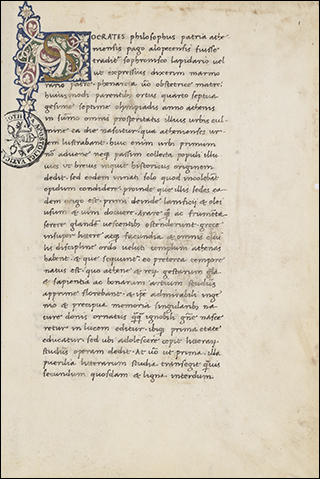 SOCRATES philosophus patria athe
niensis pago alopecensi fuisse
traditur sophronisco lapidario vel
ut expressius dixerim marmo
rario patre phenareta vo obstetrice matre
huiuscemodi parentibus ortus quarto septua
gesime septime olympiadis anno athenis
in summo omnis prosperitatis illius urbis cul
mine ea die nascitur qua athenienses ur
bem lustrabant huic enim urbi primum
no advene neque passim collecta populi illu
vies ut brevis inquit historicus originem
dedit sed eodem innati solo quod incolebat
opidum condidere proinde que illis sedes ea
dem origo est primi deinde lanificij & olei
usum & vini docuere Arare quoque ac frumeta
serere glandem vescentibus ostenderunt grece
insuper litere atque facundia & omnis civi
lis discipline ordo veluti templum athenas
habent & que sequuntur eo preterea tempore
natus est quo athene & rerum gestarum gloria
& sapientia ac bonarum artium studiis
apprime florebant & ipse admirabili inge
nio & precipua memoria singularibus na
ture donis ornatus quamquam ignobili genere nasce
retur in lucem editur ibique prima etate
educatur sed ubi adolescere cepit litterarum
studiis operam dedit At vo ut prima illa
puerilia litterarum studia transegit quamvis
secundum quosdam & ligna interdum